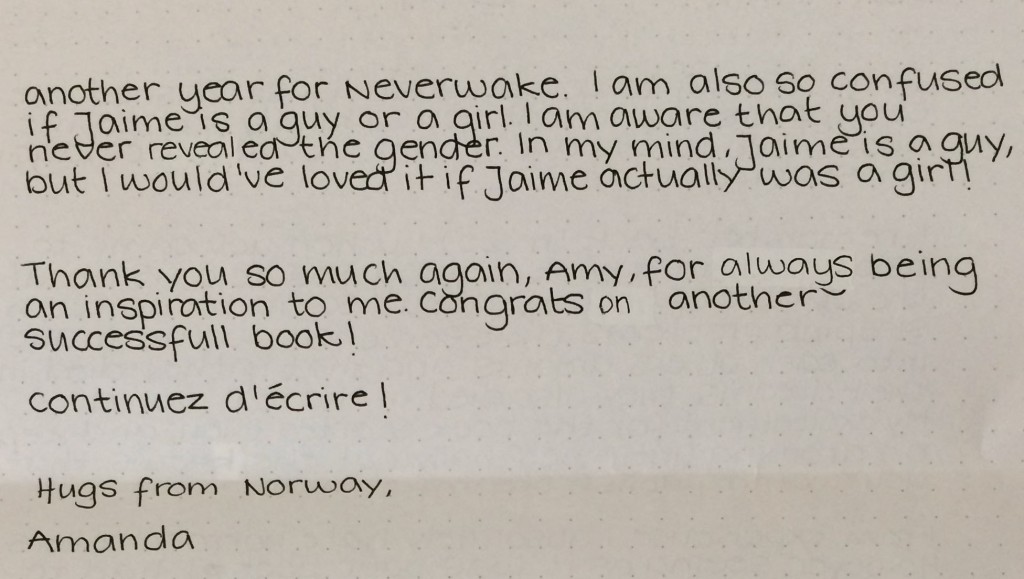 another year for Neverwake. I am also so confused
if Jaime is a guy or a girl. I am aware that you
never revealed the gender. In my mind, Jaime is a guy,
but I would've loved it if Jaime actually was a girl!
Thank you so much again, Amy, for always being
an inspiration to me. Congrats on another
successfull book!
continuez d'écrire!
Hugs from Norway,
Amanda